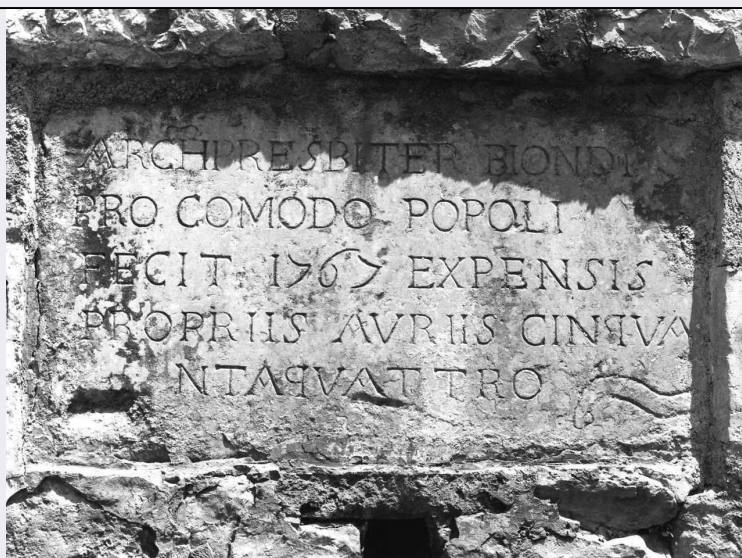 ARCHIPRESBITER BIONDI
PRO COMODO POPOLI
FECIT 1767 EXPENSIS
PROPRIIS AVRIIS CINQVA
NTAQVATTRO